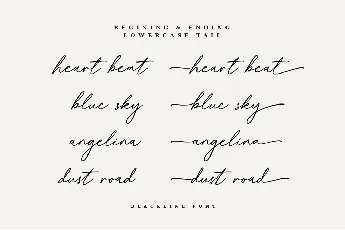 BEGINING & ENDING
LOWERCASE TAIL
heart beat heart beat
blue sky blue sky
angelina angelina
dust road dust road
BLACKLINE FONT